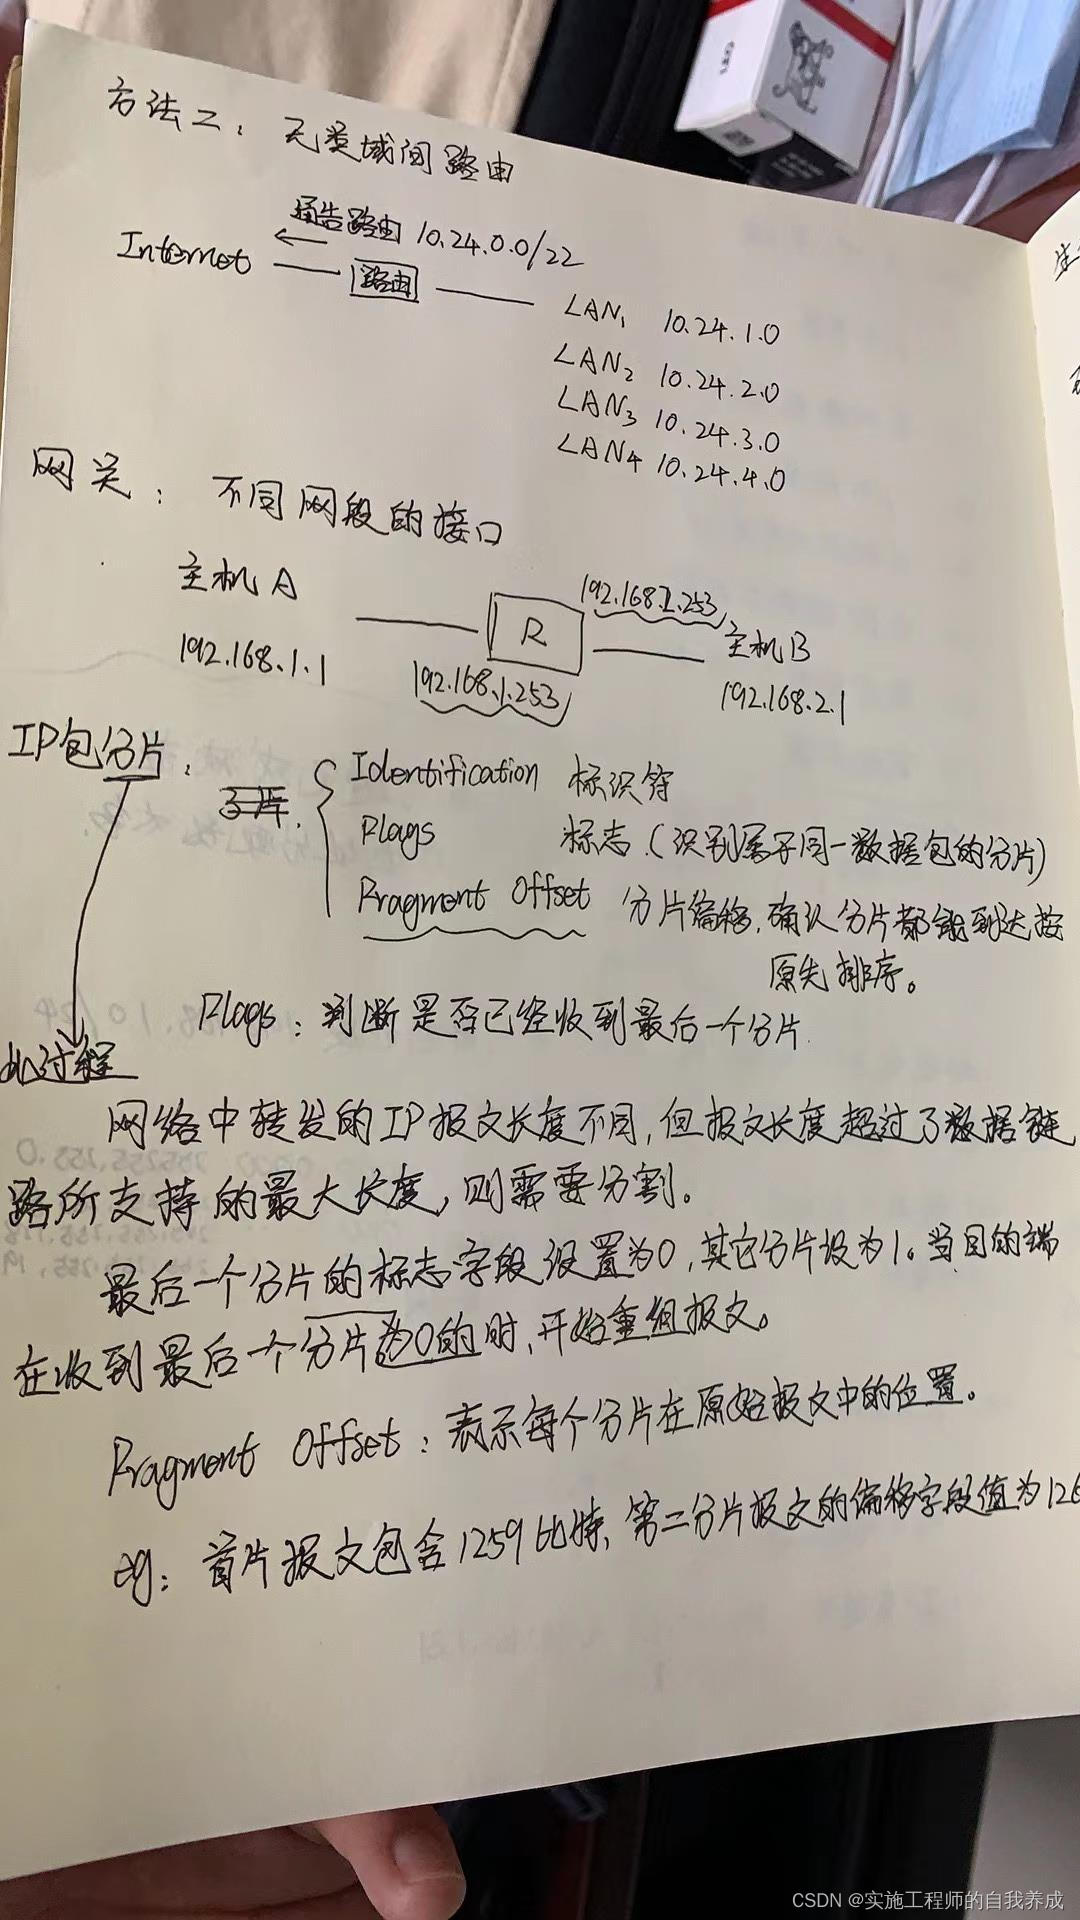 方法二：无类域间路由
通告路由 10.24.0.0/22
Internet
路由
LAN1 10.24.1.0
LAN2 10.24.2.0
LAN3 10.24.3.0
LAN4 10.24.4.0
网关：不同网段的接口
主机A
192.168.2.253
R
主机B
192.168.1.1
192.168.1.253
192.168.2.1
IP包分片：
Identification 标识符
Flags 标志（识别属于同一数据包的分片）
Fragment Offset 分片偏移，确认分片都能到达按
原先排序。
Flags：判断是否已经收到最后一个分片
此过程
网络中转发的IP报文长度不同，但报文长度超过了数据链
路所支持的最大长度，则需要分割。
最后一个分片的标志字段设置为0，其它分片设为1。当目的端
在收到最后一个分片为0的时，开始重组报文。
Fragment Offset：表示每个分片在原始报文中的位置。
eg：首片报文包含1259比特，第二分片报文的偏移字段值为126
CSDN @实施工程师的自我养成